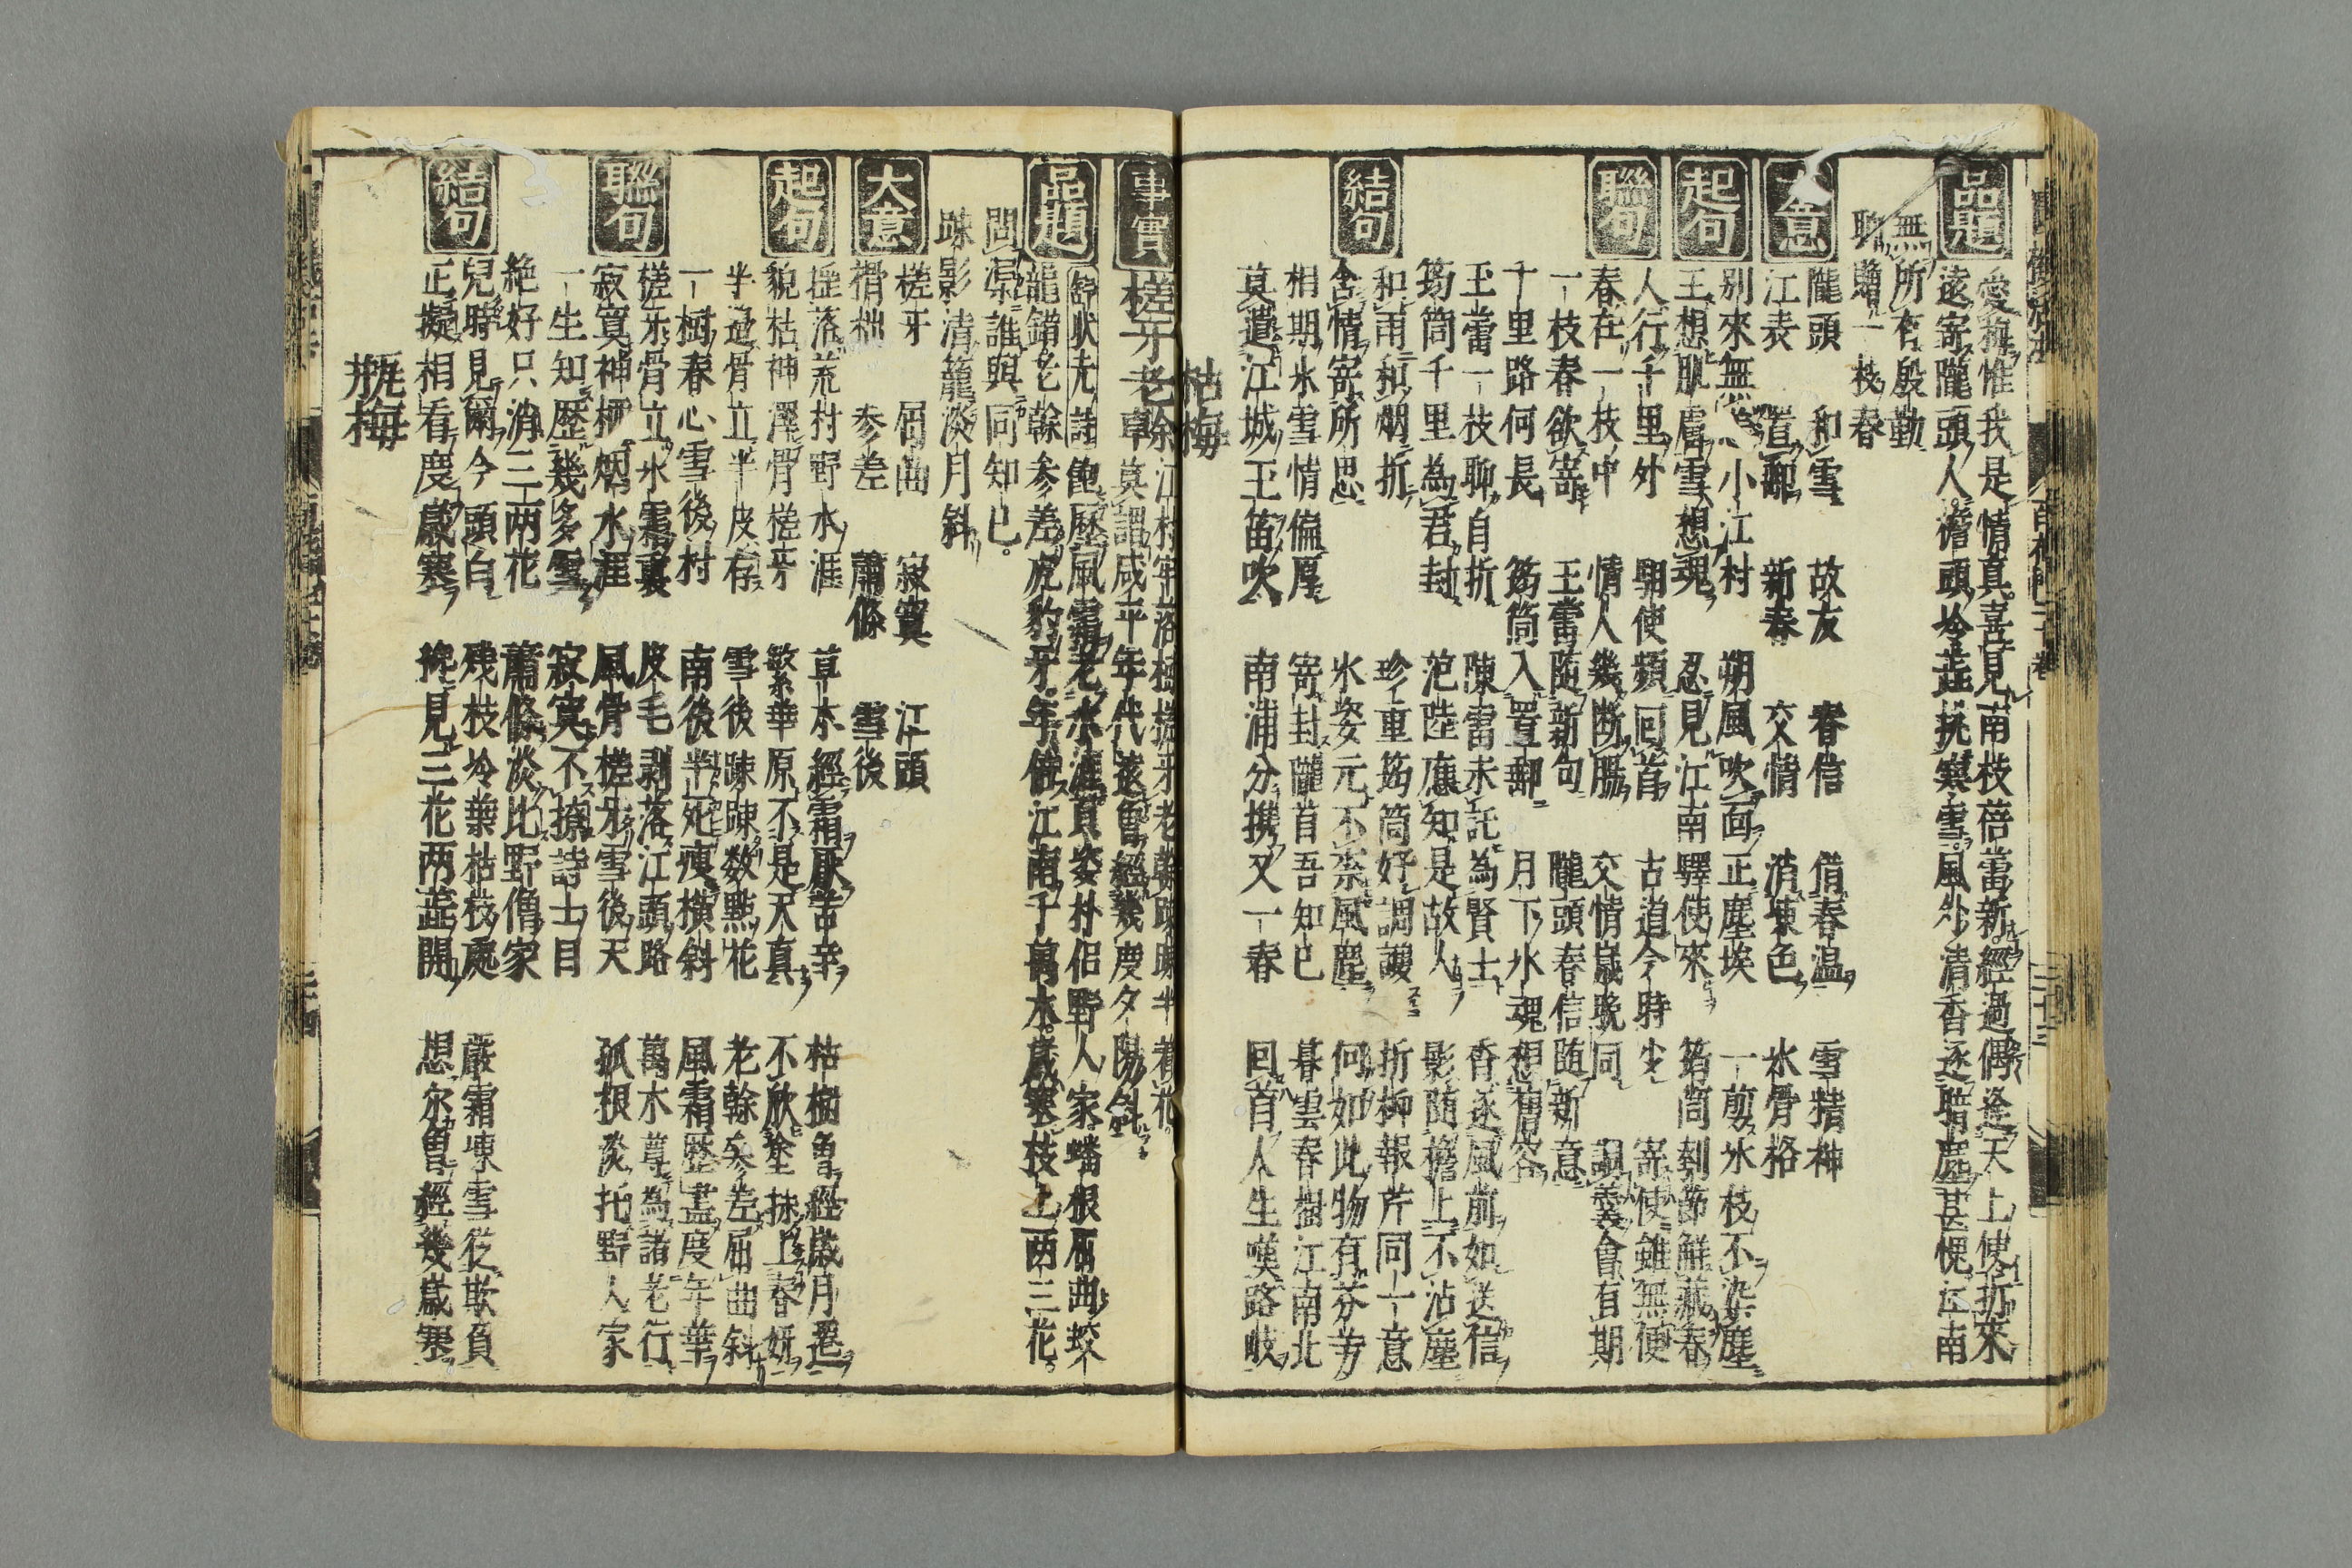 品題
愛梅惟我是情真喜見南枝蓓蕾新經過偶逢天上使折來
遠寄隴頭人 舊頭冷蕋挑寒雪風外清香逐暗塵甚愧江南
無所有殷勤
聊贈一枝春
大意
隴頭 和雪 故友 春信 借春温 雪精神
江表 置郵 新春 交情 消凍色 氷骨格
起句
別來無恙小江村 朔風吹面正塵埃 一剪氷枝不染塵
玉想肌膚雪想魂 忍見江南驛使來 筠筒剖節鮮藏春
聯句
人行千里外 駉使頻回首 古道今時少 寄使雖無便
春在一枝中 情人幾断膓 交情嵗晚同 調羮會有期
一枝春欲寄 玉蕾随新句 隴頭春信随新意
千里路何長 筠筒入置郵 月下氷魂想舊容
玉蕾一枝聊自折 陳雷未託為賢士 香逐風前如送信
筠筒千里為君封 范陸應知是故人 影随檐上不沾塵
結句
和雨和烟折 珍重筠筒好調護 折柳報芹同一意
含情寄所思 氷姿元不柰風塵 何如此物有芬芳
相期氷雪情偏厚 寄封隴首吾知已 暮雲春樹江南北
莫遣江城玉笛吹 南浦分携又一春 回首人生嘆路岐
枯梅
事實
槎牙老榦 江村牢落樹槎牙老榦踈踈半着花
莫謂咸平年代遠曾經幾度夕陽斜
品題
舒状元詩 飽歴風霜老水涯貞姿朴侶野人家蟠根屈曲蛟
龍錯老榦参差虎豹牙年倍江南千萬木嵗寒枝上两三花
問渠誰與同知已
踈影清籠淡月斜
大意
槎牙 屈曲 寂寞 江頭
榾柮 参差 蕭條 雪後
起句
摧落荒村野水涯 草木經霜厭苦辛 枯樹曽經嵗月遷
貌枯神澤骨槎牙 繁華原不是天真 不欣塗抹上春妍
半邊骨立半皮存 雪後踈踈数點花 老榦参差屈曲斜
一樹春心雪後村 南後半死痩橫斜 風霜歴盡度年華
聯句
槎牙骨立氷霜裏 皮毛剥落江頭路 萬木尊為諸老行
寂寞神栖烟水涯 風骨槎牙雪後天 孤根淡托野人家
一生知歴幾多雪 寂寞不撩詩士目
絶好只消三两花 蕭條淡比野僧家
結句
兒時見爾今頭白 殘枝冷葉枯枝處 嚴霜凍雪從欺負
正擬相看度嵗寒 挽見三花两蕋開 想尔曽經幾嵗寒
瓶梅